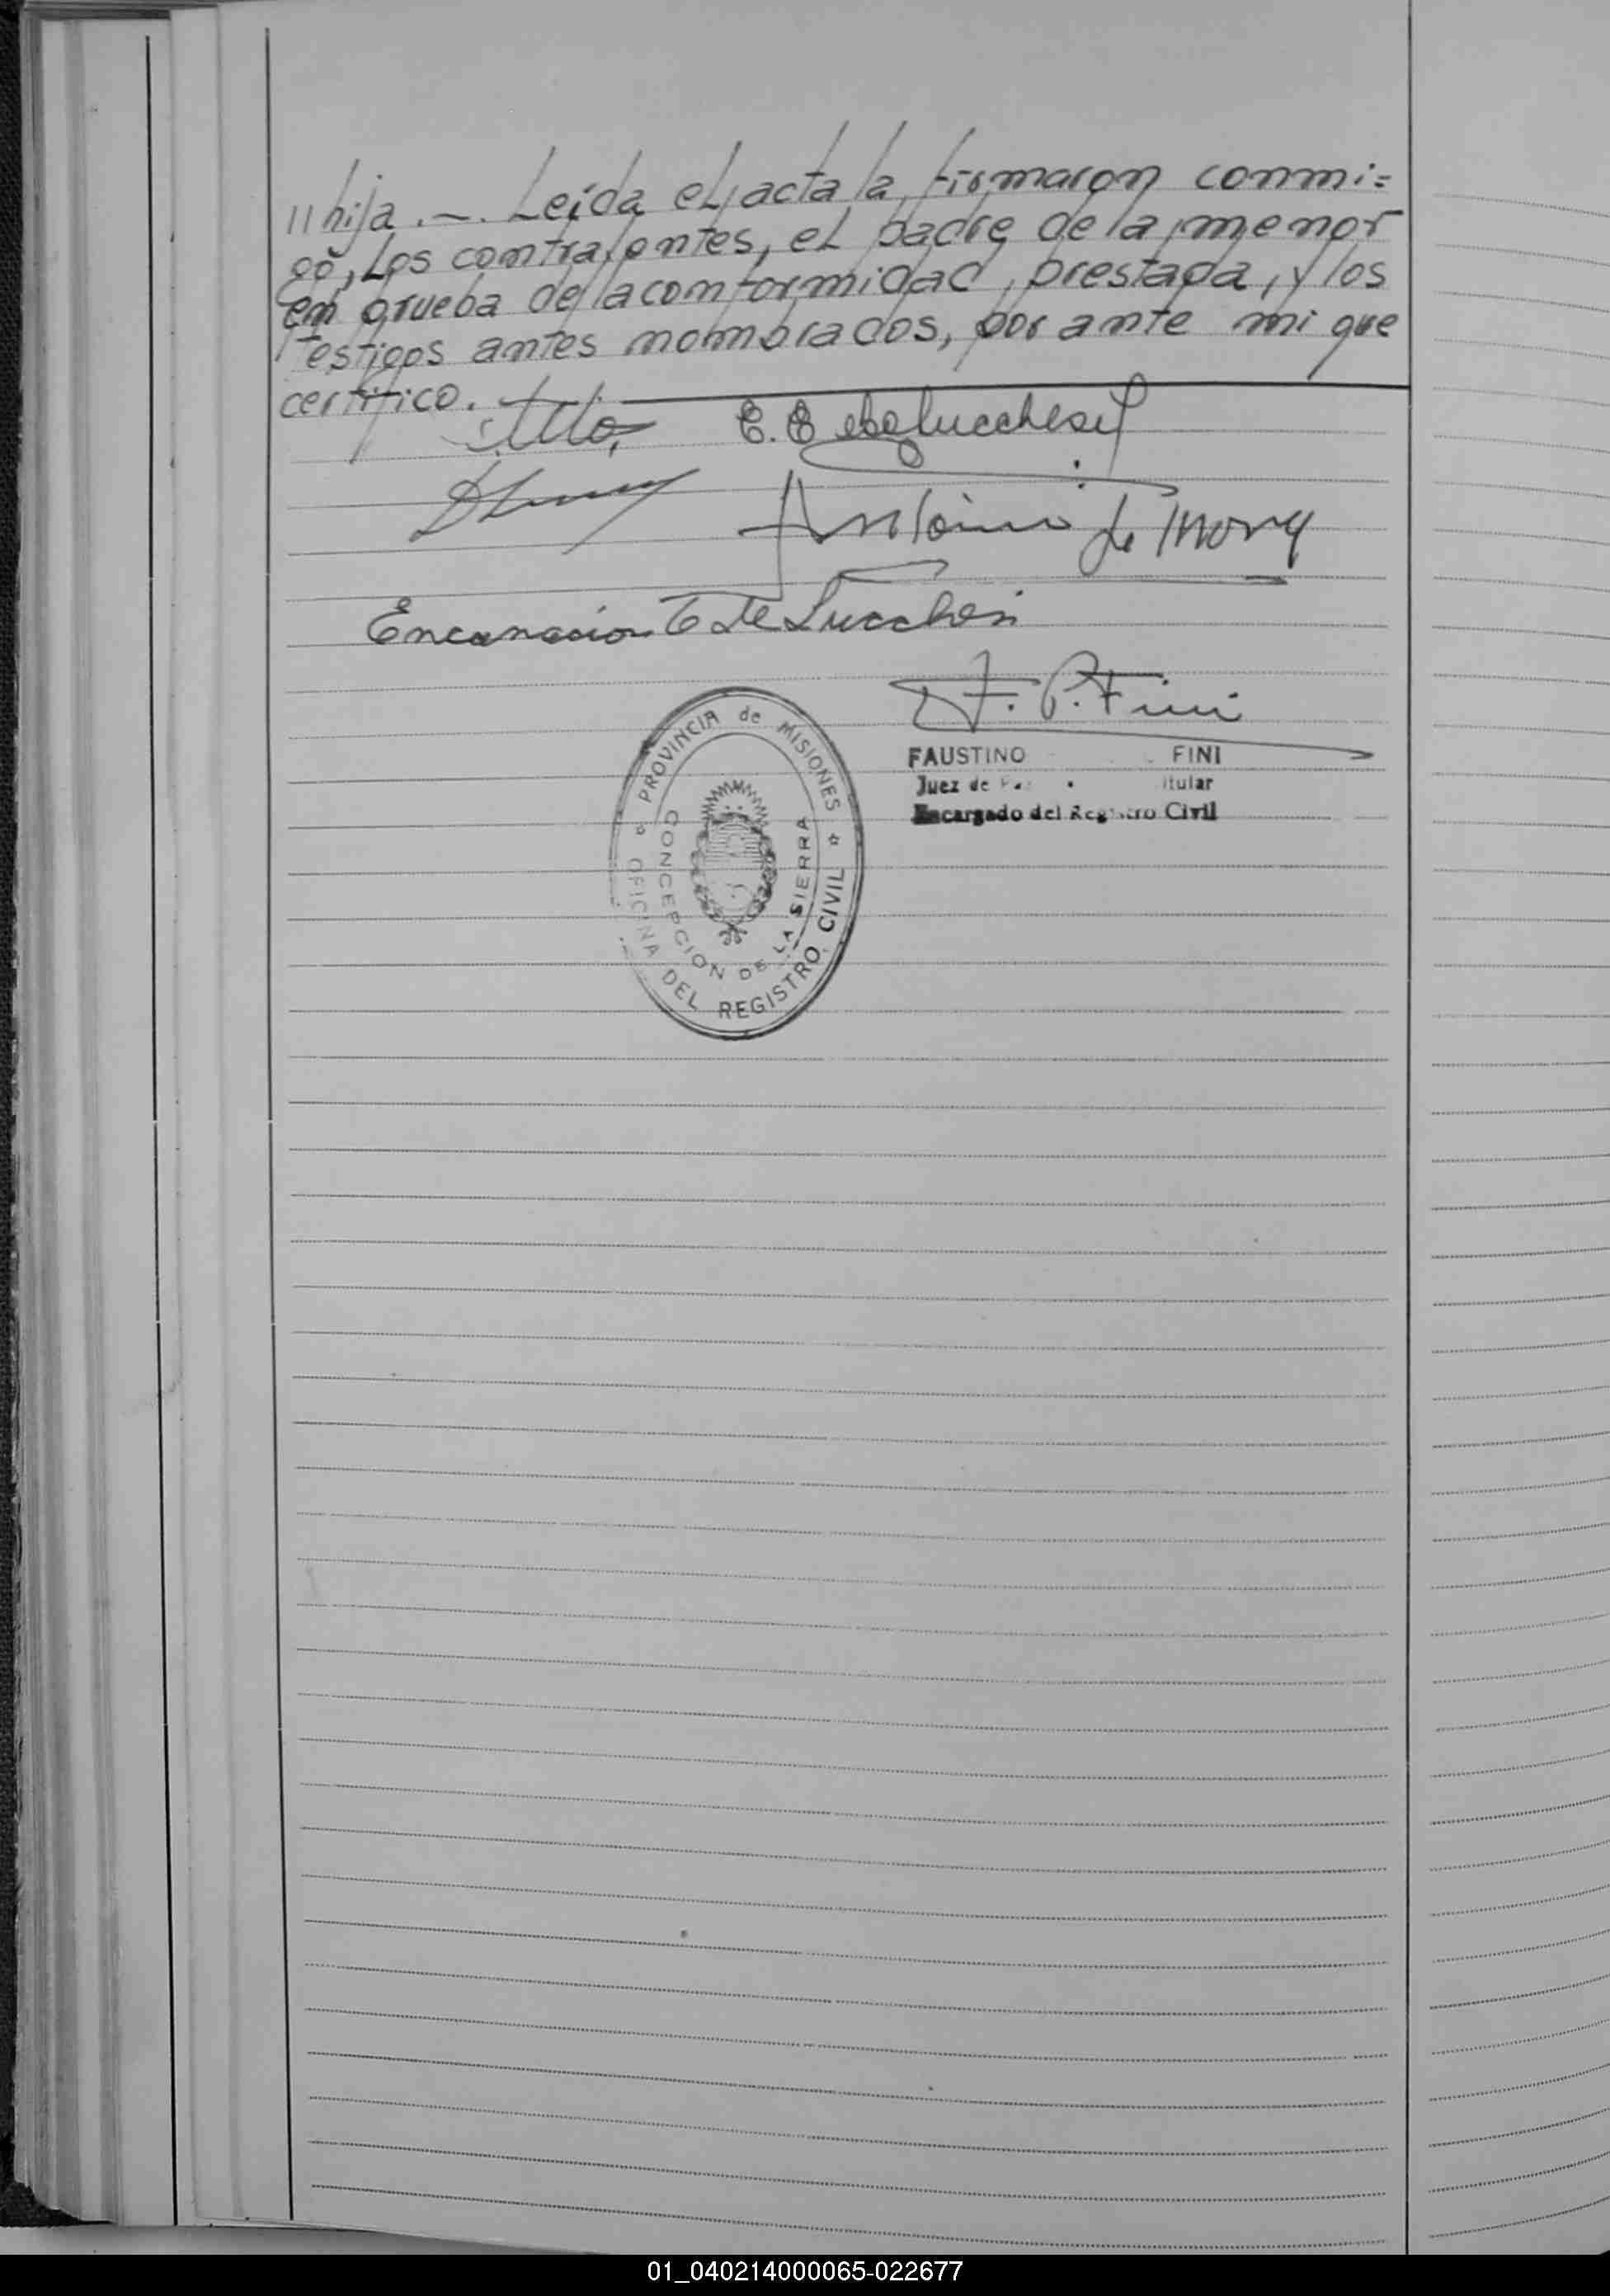 // hija. —. Leída el acta la firmaron conmi=
go, los contrayentes, el padre de la menor
en prueba de la conformidad prestada, y los
testigos antes nombrados, por ante mi que
certifico.
Antonio de Mora
Encarnacion E de Lucchesi
F. P. Fini
FAUSTINO FINI
Juez de itular
Encargado del Registro Civil
PROVINCIA de MISIONES
OFICINA DEL REGISTRO CIVIL
CONCEPCION DE LA SIERRA
01_040214000065-022677